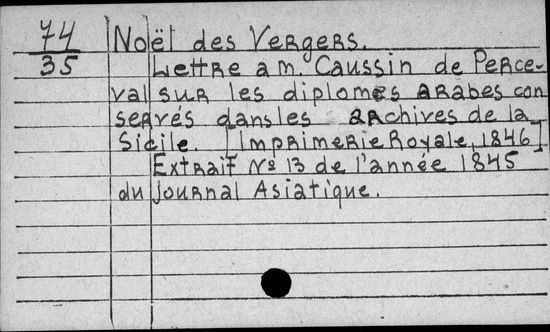 74 Noël des Vergers.
35 Lettre a m. Caussin de Perce-
val sur les diplomes arabes con
servés dans les archives de la
Sicile. [Imprimerie Royale, 1846]
Extrait № 13 de l'année 1845
du Journal Asiatique.